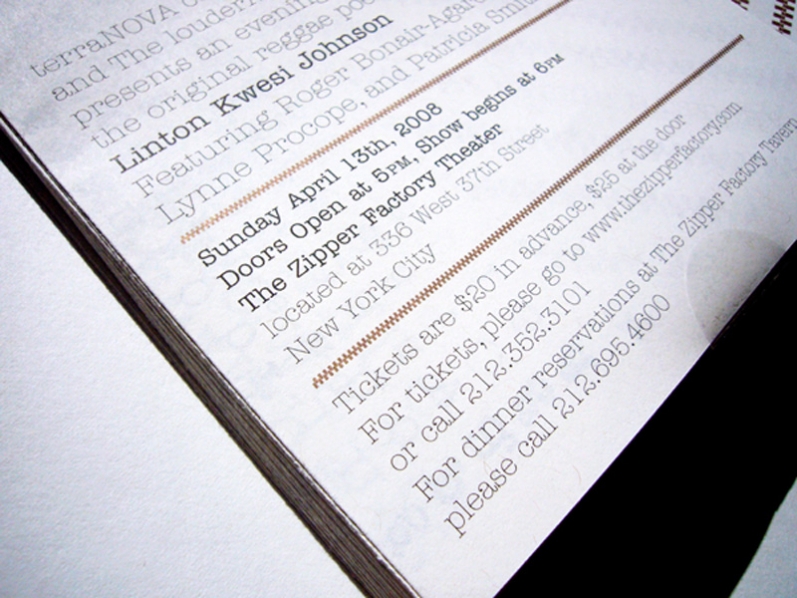 terraNOVA
and The louder
presents an evening
the original reggae poe
Linton Kwesi Johnson
Featuring Roger Bonair-Agar
Lynne Procope, and Patricia Smi
Sunday April 13th, 2008
Doors Open at 5PM, Show begins at 6PM
The Zipper Factory Theater
located at 336 West 37th Street
New York City
Tickets are $20 in advance, $25 at the door
For tickets, please go to www.thezipperfactory.com
or call 212.352.3101
For dinner reservations at The Zipper Factory Tavern
please call 212.695.4600